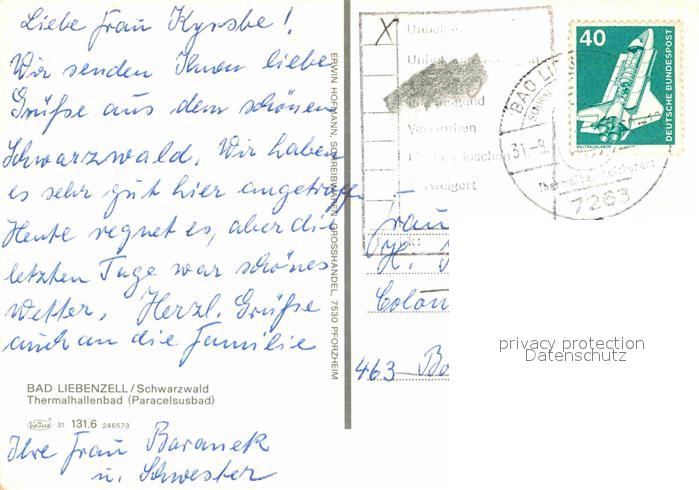 Liebe Frau Kyrsbe!
Wir senden Ihnen liebe
Grüße aus dem schönen
Schwarzwald. Wir haben
es sehr gut hier angetroffen.
Heute regnet es, aber die
letzten Tage war schönes
Wetter. Herzl. Grüße
auch an die Familie
BAD LIEBENZELL/Schwarzwald
Thermalhallenbad (Paracelsusbad)
Krüger 31. 131.6 246573
Ihre Frau Baranek
u. Schwester
ERWIN HOFMANN, SCHREIBWAREN-GROSSHANDEL, 7530 PFORZHEIM
X
Verstorben
40
DEUTSCHE BUNDESPOST
BAD LIE
31.-8.
7263
Frau
Colon
463 Bo
privacy protection
Datenschutz